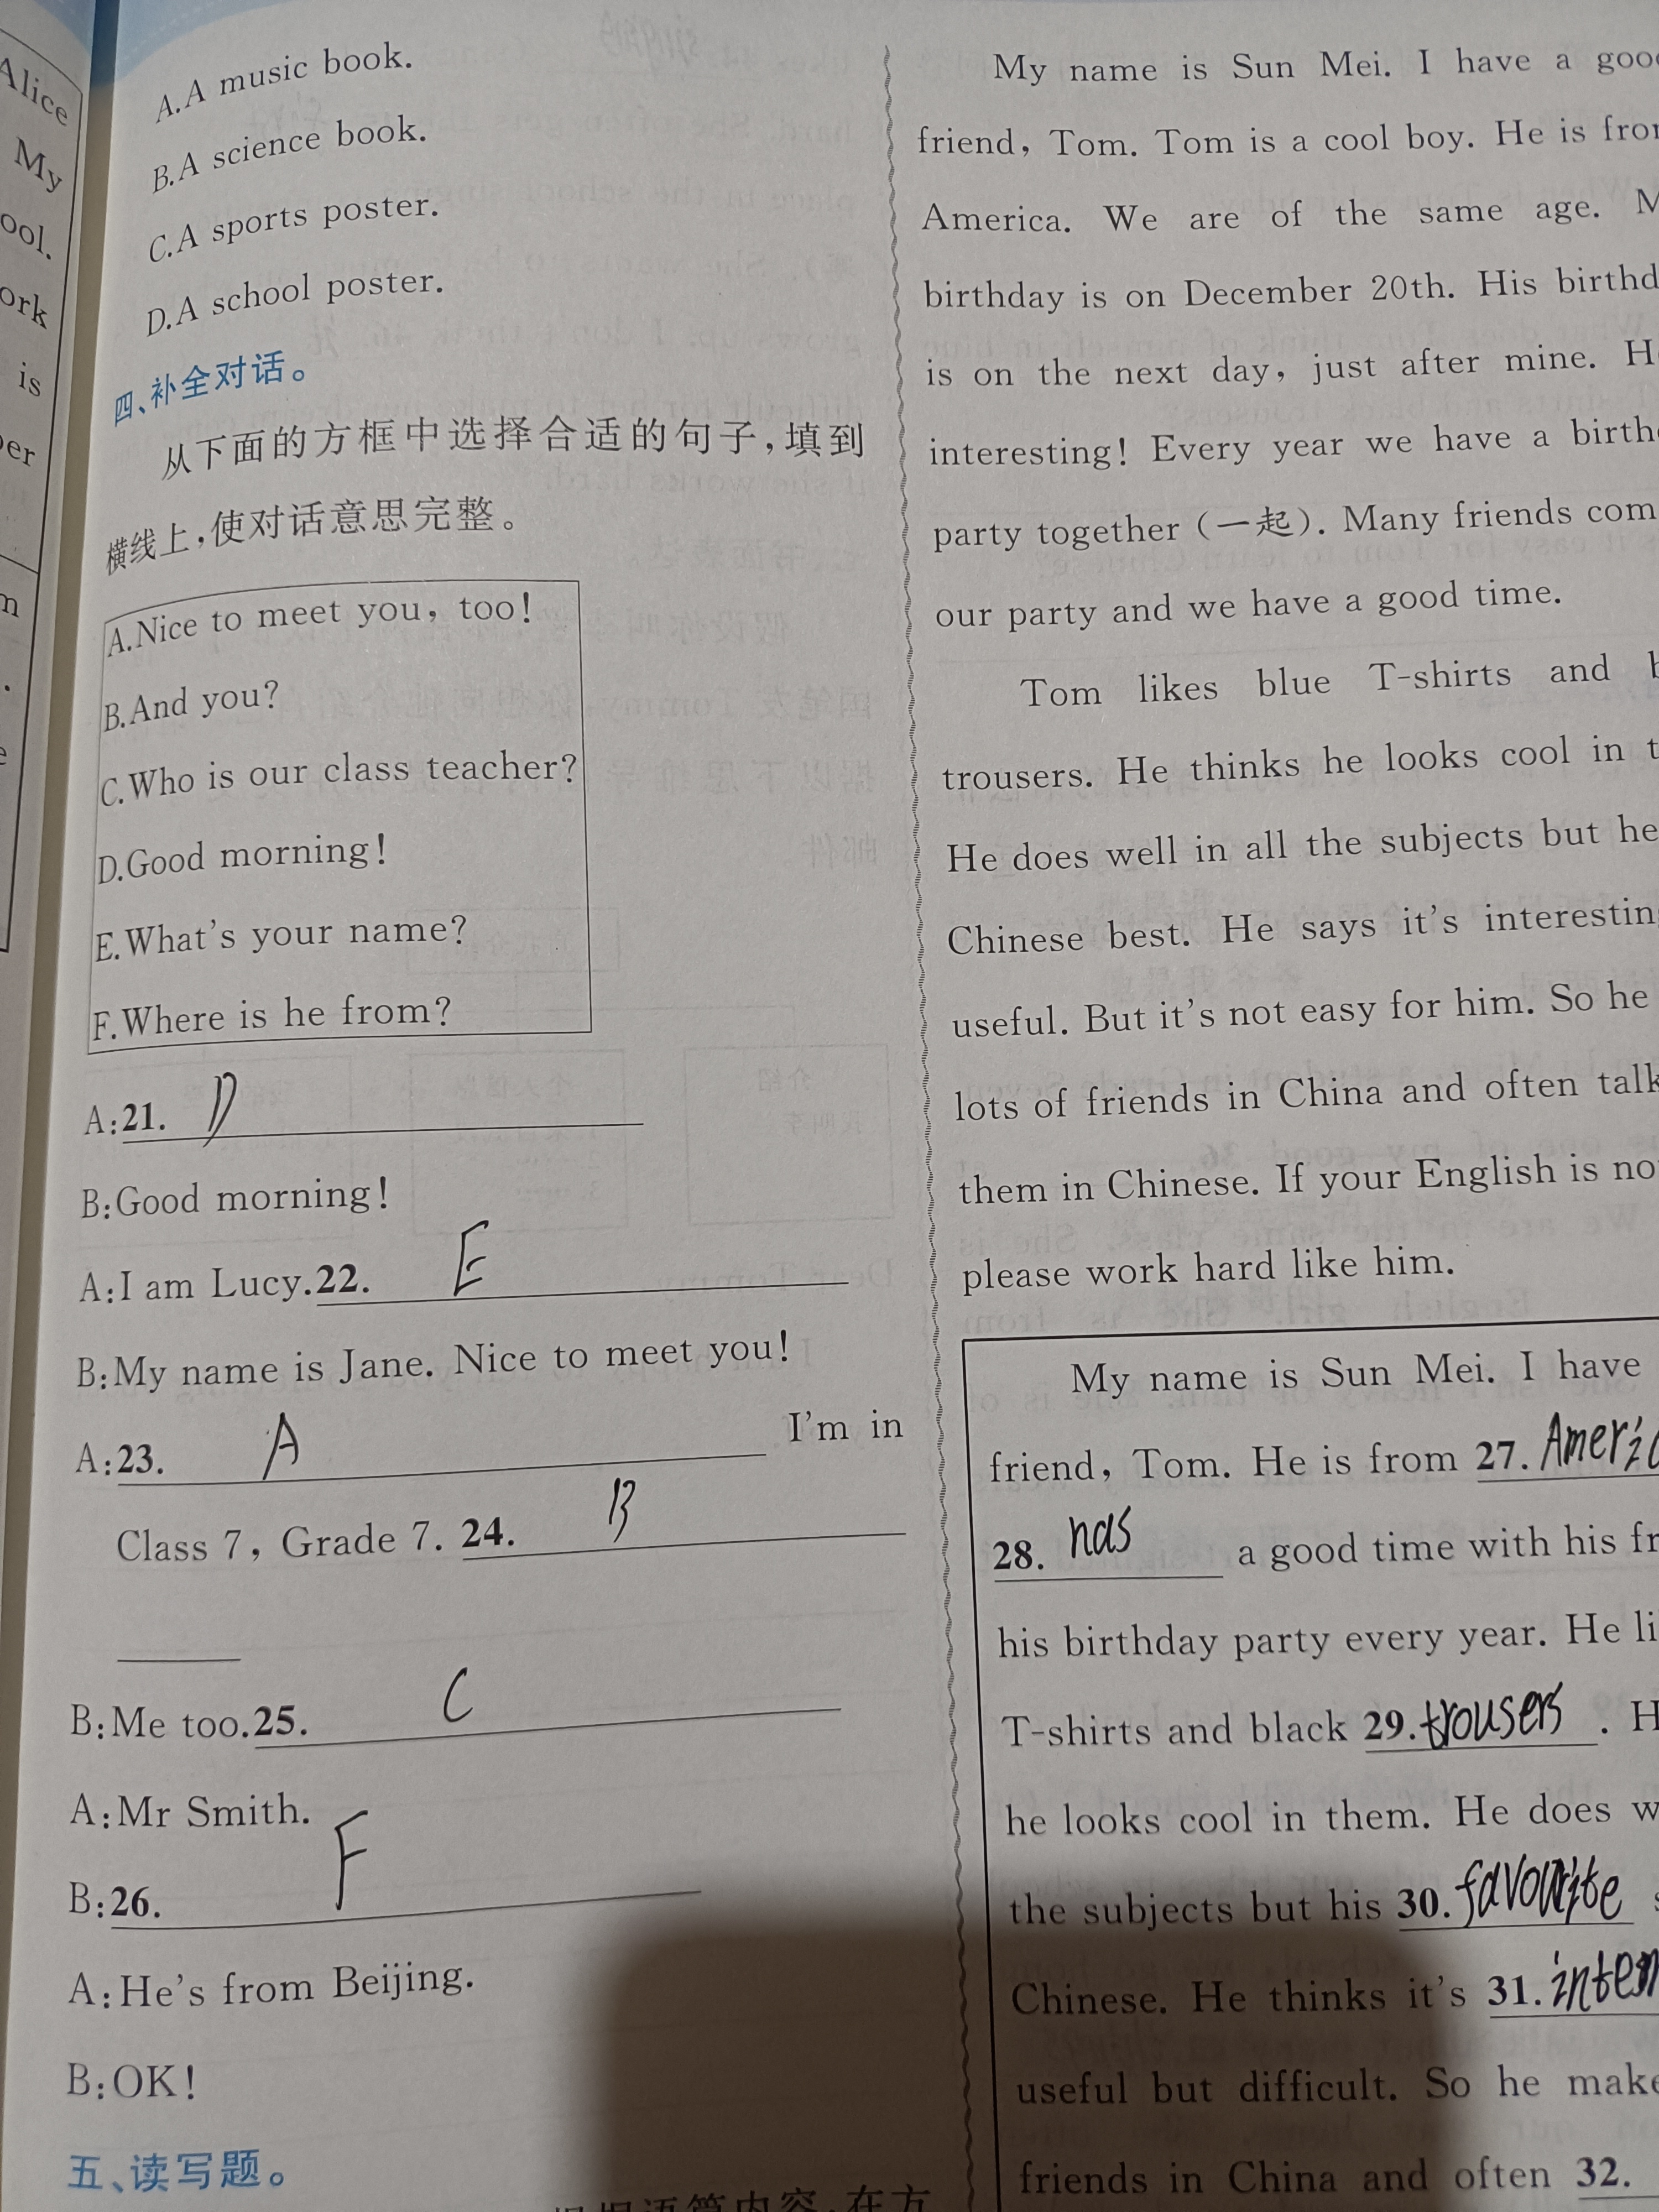 Alice
My
ool.
ork
is
er
A.A music book.
B.A science book.
C.A sports poster.
D.A school poster.
四、补全对话。
从下面的方框中选择合适的句子,填到
横线上,使对话意思完整。
A.Nice to meet you, too!
B.And you?
C.Who is our class teacher?
D.Good morning!
E.What's your name?
F.Where is he from?
A:21. D
B:Good morning!
A:I am Lucy.22. E
B:My name is Jane. Nice to meet you!
A:23. A I'm in
Class 7, Grade 7. 24. B
B:Me too.25. C
A:Mr Smith.
B:26. F
A:He's from Beijing.
B:OK!
五、读写题。
语篇内容,在方
My name is Sun Mei. I have a goo
friend, Tom. Tom is a cool boy. He is fro
America. We are of the same age. M
birthday is on December 20th. His birthd
is on the next day, just after mine. H
interesting! Every year we have a birth
party together (一起). Many friends com
our party and we have a good time.
Tom likes blue T-shirts and b
trousers. He thinks he looks cool in t
He does well in all the subjects but he
Chinese best. He says it's interestin
useful. But it's not easy for him. So he
lots of friends in China and often talk
them in Chinese. If your English is no
please work hard like him.
My name is Sun Mei. I have
friend, Tom. He is from 27. Americ
28. has a good time with his fr
his birthday party every year. He li
T-shirts and black 29. trousers . H
he looks cool in them. He does w
the subjects but his 30. favourite s
Chinese. He thinks it's 31. inter
useful but difficult. So he make
friends in China and often 32.